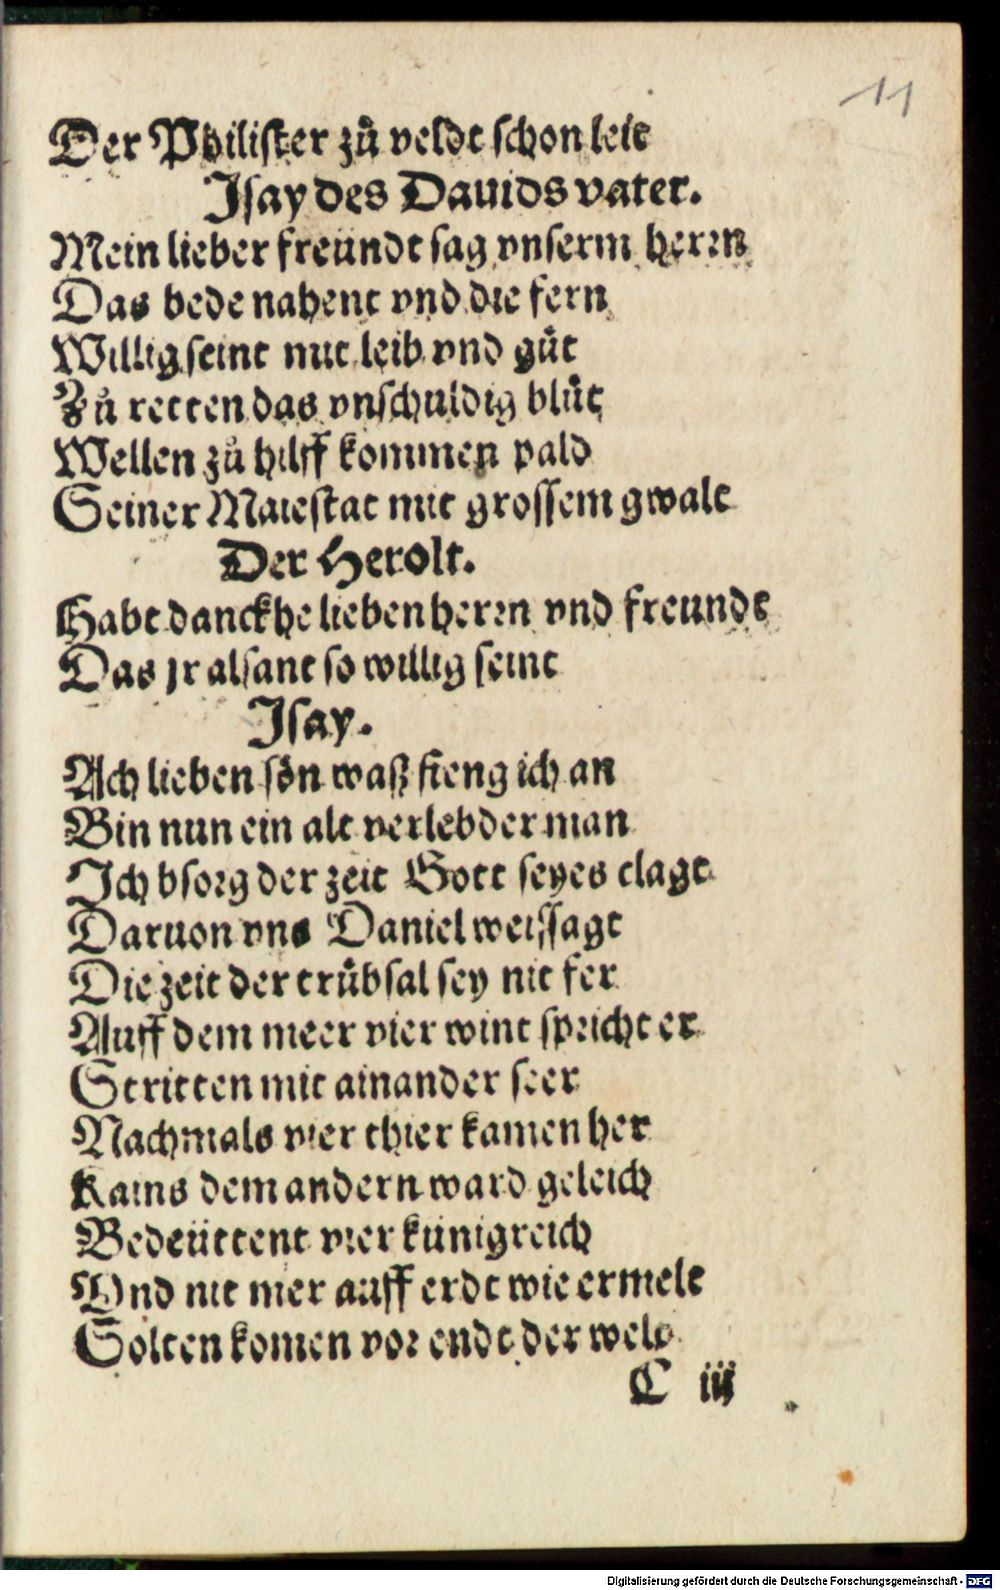 11
Der Philister zů veldt schon leit
Isay des Dauids vater.
Mein lieber freündt sag vnserm herrn
Das bede nahent vnd die fern
Willig seint mit leib vnd gůt
Zů retten das vnschuldig blůt
Wellen zů hilff kommen pald
Seiner Maiestat mit grossem gwalt
Der Herolt.
Habt danckh lieben herrn vnd freundt
Das jr alsant so willig seint
Isay.
Ach lieben sön waß fieng ich an
Bin nun ein alt verlebder man
Ich bsorg der zeit Gott seyes clagt
Daruon vns Daniel weissagt
Die zeit der trübsal sey nit fer
Auff dem meer vier wint spricht er
Stritten mit ainander seer
Nachmals vier thier kamen her
Kains dem andern ward geleich
Bedeüttent vier künigreich
Vnd nit mer auff erdt wie er melt
Solten komen vor endt der welt
C iij
Digitalisierung gefördert durch die Deutsche Forschungsgemeinschaft - DFG